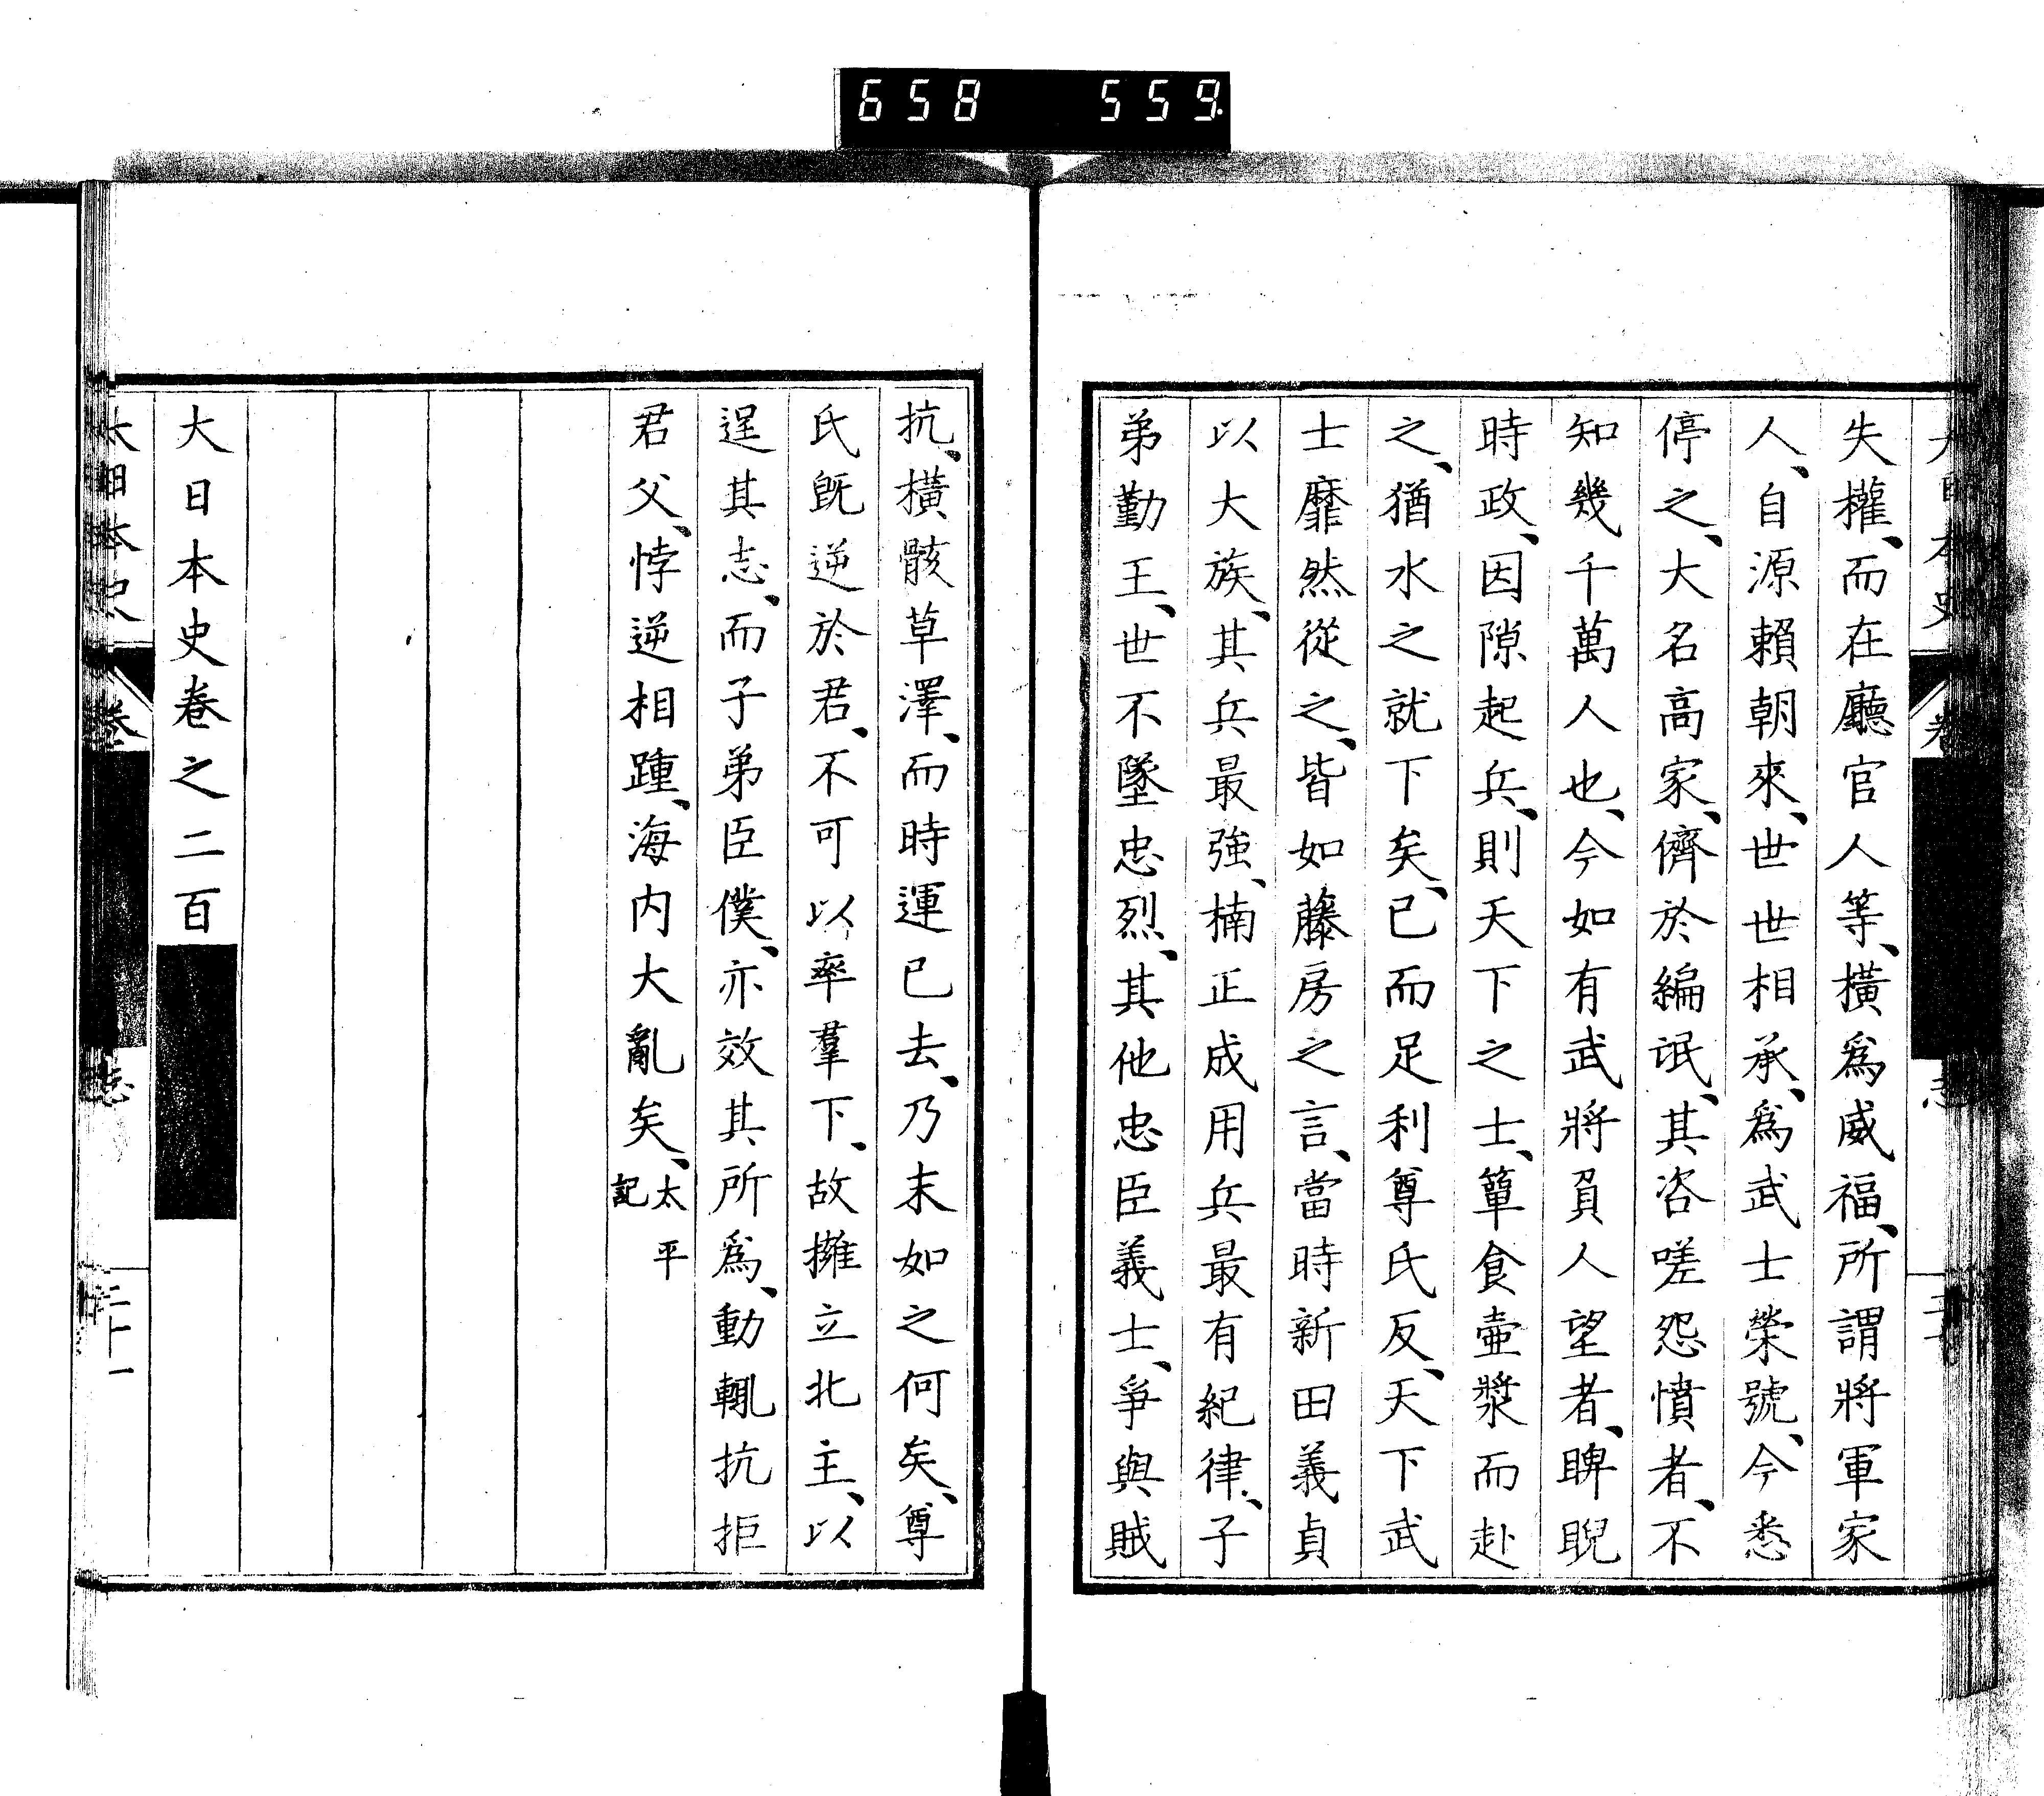 658 559
失權、而在廳官人等、橫爲威福、所謂將軍家
人、自源賴朝來、世世相承、爲武士榮號、今悉
停之、大名高家、儕於編氓、其咨嗟怨憤者、不
知幾千萬人也、今如有武將負人望者、睥睨
時政、因隙起兵、則天下之士、簞食壺漿而赴
之、猶水之就下矣、已而足利尊氏反、天下武
士靡然從之、皆如藤房之言、當時新田義貞
以大族、其兵最強、楠正成用兵最有紀律、子
弟勤王、世不墜忠烈、其他忠臣義士、爭與賊
抗、橫骸草澤、而時運已去、乃末如之何矣、尊
氏旣逆於君、不可以率羣下、故擁立北主、以
逞其志、而子弟臣僕、亦效其所爲、動輒抗拒
君父、悖逆相踵、海内大亂矣、太平記
大日本史卷之二百
大日本史 卷 志 二十一